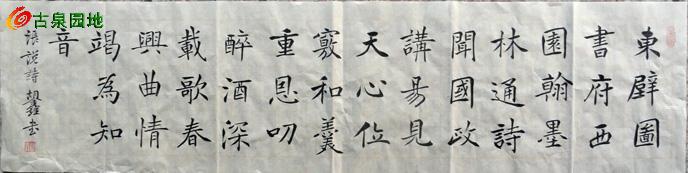 古泉园地
東壁圖
書府西
園翰墨
林通詩
聞國政
講易見
天心位
竅和羹
重恩叨
醉酒深
載歌春
興曲情
竭為知
音
張說詩